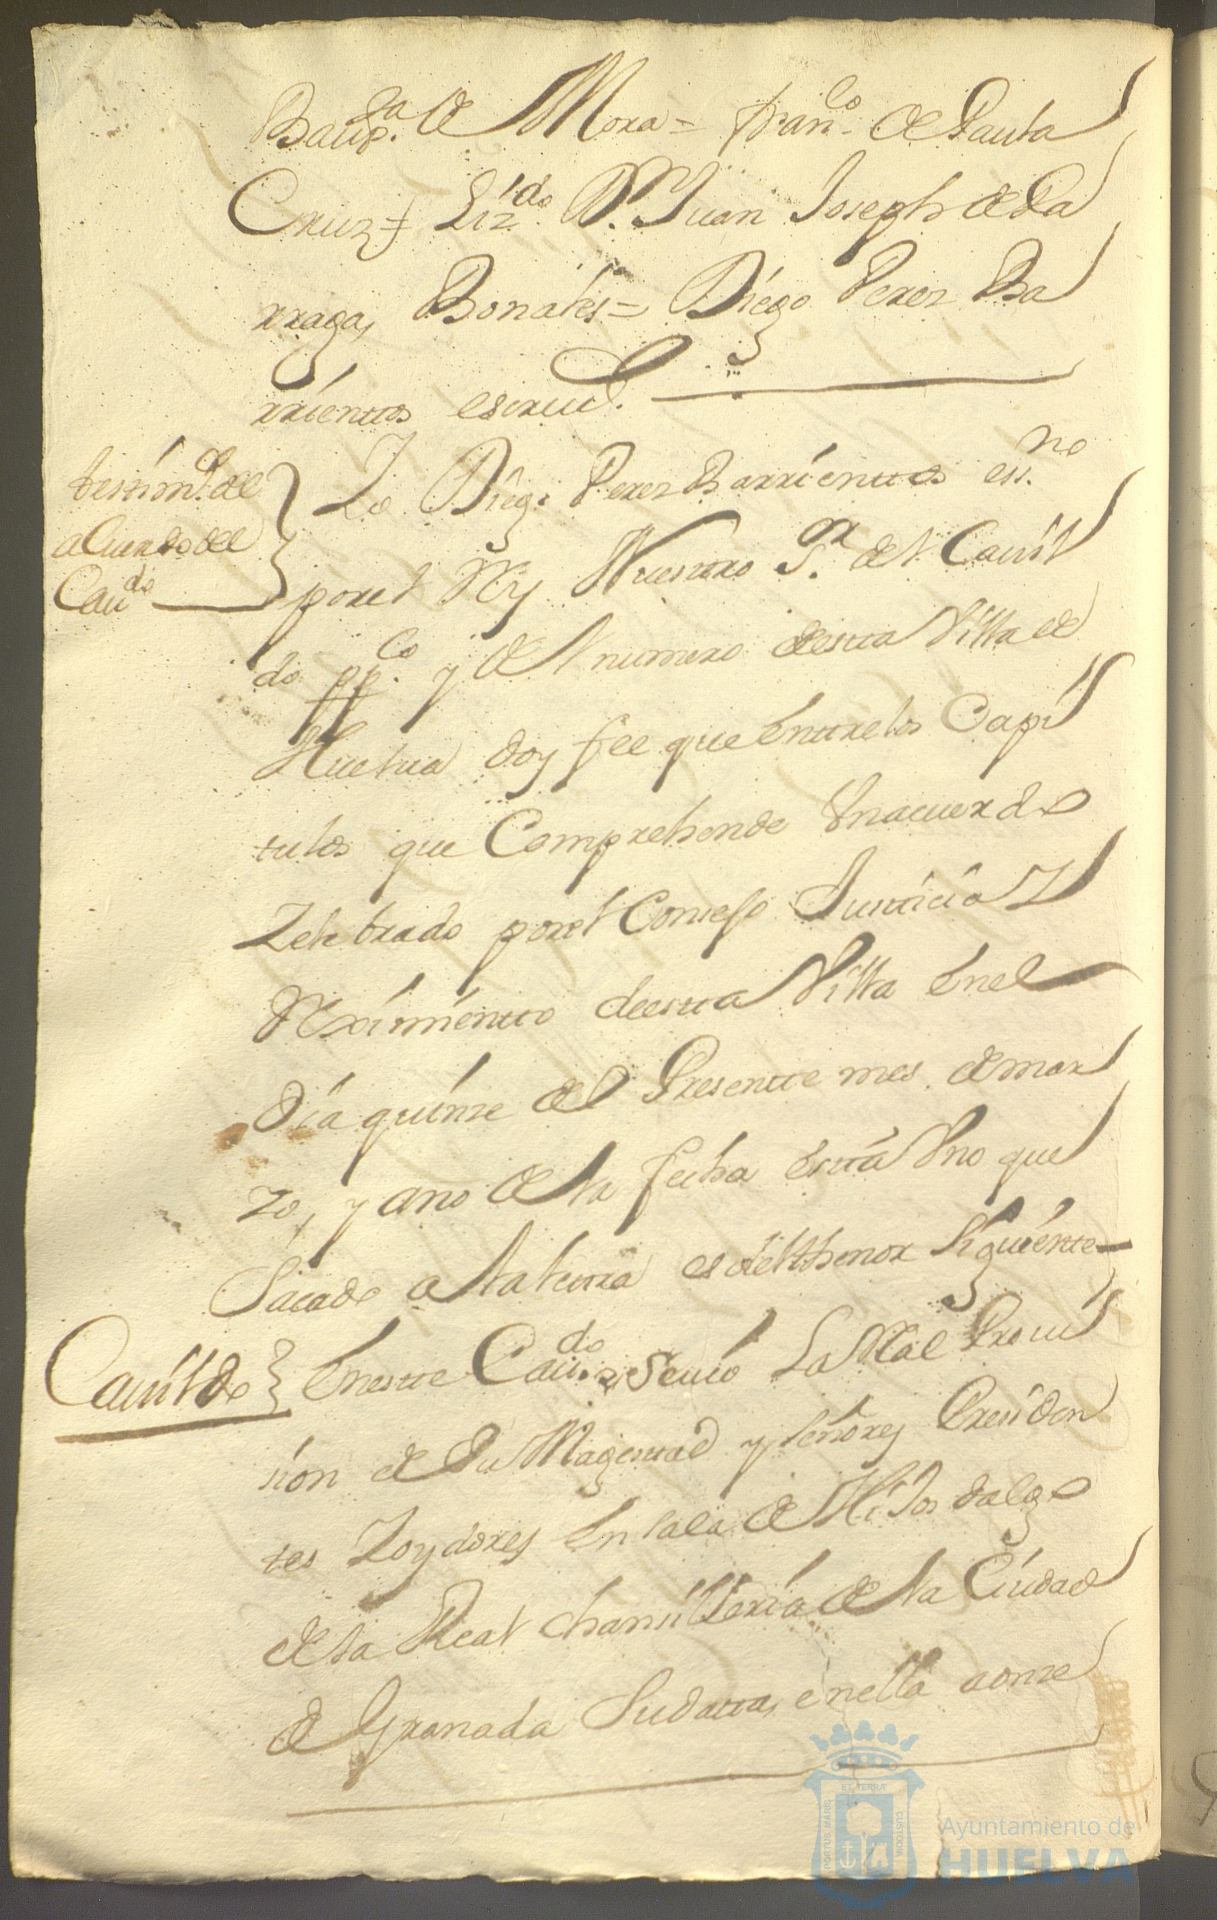 Baup.ta de Mora = Fran.co de Pauta
Cruz = Liz.do D. Juan Joseph de La
rraga, Bonales = Diego Perez Ba
rrientos escriu.
testim.o del
acuerdo del
Cau.do
Yo Diego Perez Barrientos ess.no
por el Rey Nuestro S.or del Cauil
do pp.co y del numero desta Villa de
Huelua doy fee que Entre los Capi
tulos que Comprehende Vn acuerdo
Zelebrado por el Consejo Justicia Y
Reximiento de esta Villa En el
Dia quinze del Presente mes de mar
zo, y ano de la fecha Esta Vno que
Sacado a la letra es del thenor Siguiente
Cauildo
En este Cau.do se uio La Real Proui
sion de Su Magestad y señores Presiden
tes Y oydores En sala de Hijos dalgo
de la Real chansilleria de la Ciudad
de Granada Su data, en ella a onze
Ayuntamiento de
HUELVA